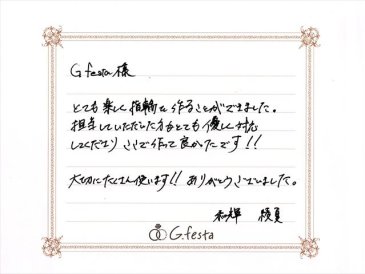 G.festa 様
とても楽しく指輪を作ることができました。
担当していただいた方がとても優しく対応
してくださり ここで作って良かったです!!
大切にたくさん使います!! ありがとうございました。
和輝
G.festa